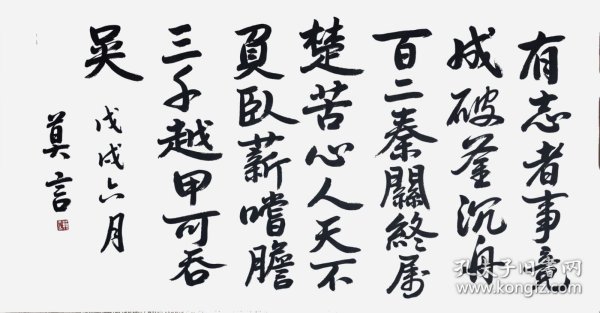 有志者事竟
成破釜沉舟
百二秦關終属
楚苦心人天不
負臥薪嚐膽
三千越甲可吞
吴
戊戌六月
莫言
孔夫子旧书网
www.kongfz.com